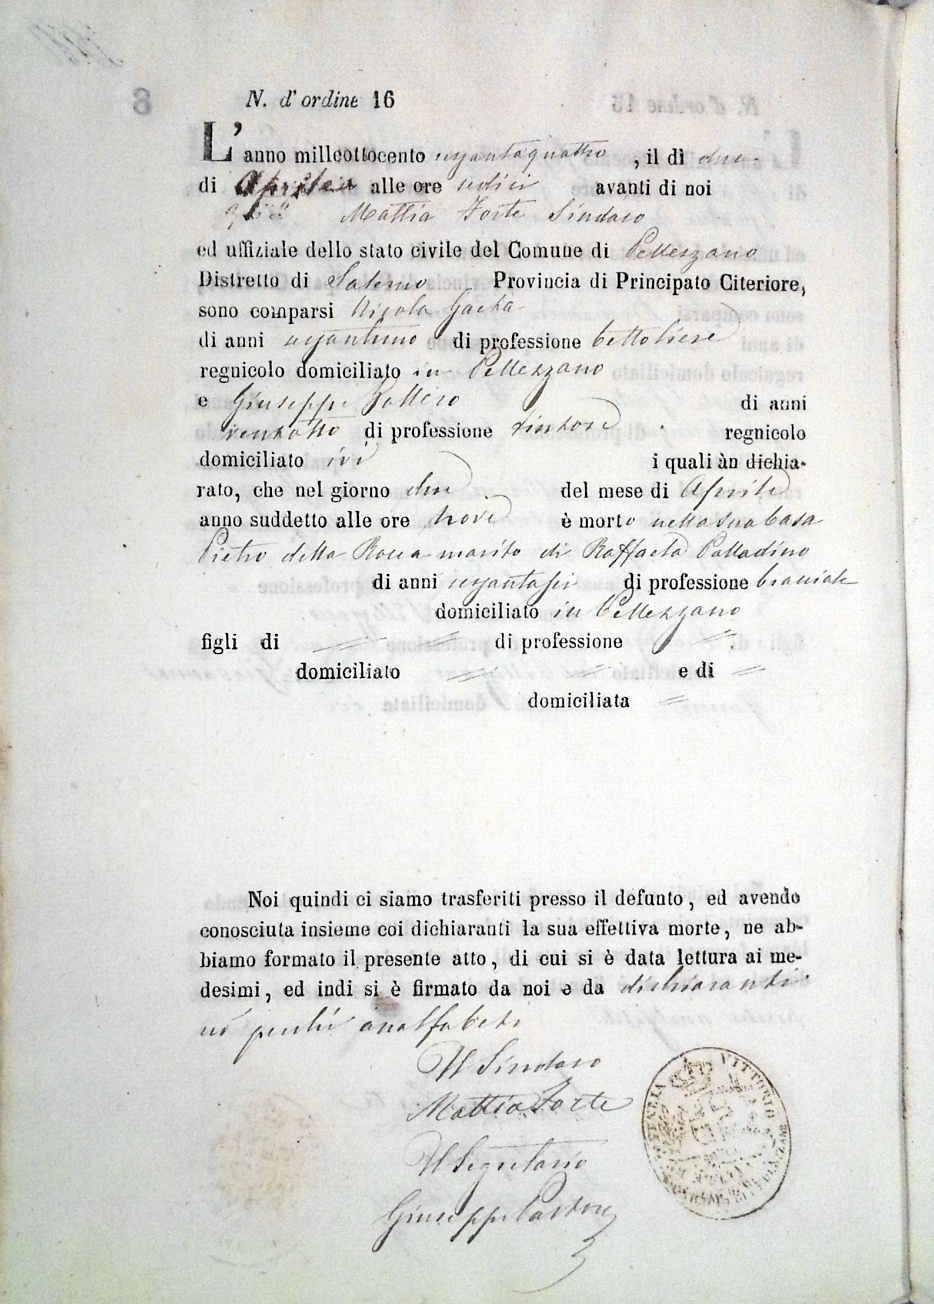 N. d' ordine 16
L' anno milleottocento sessantaquattro, il dì due
di Aprile alle ore sedici avanti di noi
Mattia Forte Sindaco
ed uffiziale dello stato civile del Comune di Pellezzano
Distretto di Salerno Provincia di Principato Citeriore,
sono comparsi Nicola Gaeta
di anni sessantuno di professione bettoliere
regnicolo domiciliato in Pellezzano
e Giuseppe di anni
ventotto di professione tintore regnicolo
domiciliato ivi i quali àn dichia-
rato, che nel giorno due del mese di Aprile
anno suddetto alle ore nove è morto nella sua casa
Pietro della Rocca marito di Raffaela Palladino
di anni sessantasei di professione bracciale
domiciliato in Pellezzano
figli di di professione
domiciliato e di
domiciliata
Noi quindi ci siamo trasferiti presso il defunto, ed avendo
conosciuta insieme coi dichiaranti la sua effettiva morte, ne ab-
biamo formato il presente atto, di cui si è data lettura ai me-
desimi, ed indi si è firmato da noi e da dichiaranti
nò perchè analfabeti
Il Sindaco
Mattia Forte
Il Segretario
Giuseppe Pastore
VITTORIO